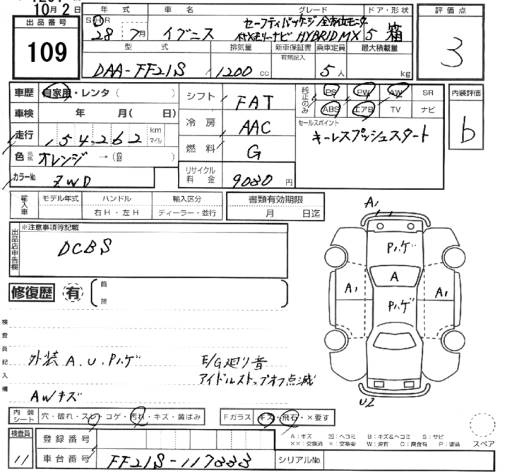 10月2日
出品番号
109
年式 車名 グレード ドア・形状 評価点
28年7月 イグニス HYBRID MX 5 箱
3
型式 排気量 新車保証書 乗車定員 最大積載量
有無記入
DAA-FF21S 1200cc 5人 kg
車歴 自家用・レンタ( )
車検 年 月( 日)
走行 154,262 km マイル
色 オレンジ →( )
カラーNo. ZWD
シフト FAT
冷房 AAC
燃料 G
リサイクル料金 9080円
純正のみ PS PW AW SR
ABS エアB TV ナビ
セールスポイント
キーレスプッシュスタート
内装評価
b
輸入車 モデル年式 ハンドル 輸入区分
年 右H・左H ディーラー・並行
書類有効期限
月 日迄
出品店申告欄
※注意事項等記載
DCBS
修復歴 有
検査員記入欄
外装 A.U.Pハゲ E/G廻り音
アイドルストップオフ点滅
AWキズ
A1
Pハゲ
A
A1 Pハゲ A1
U2
スペア
内装シート 穴・破れ・スレ・コゲ・汚れ・キズ・装はみ
Fガラス キズ・飛石・×要す
A:キズ U:ヘコミ B:キズ&ヘコミ S:サビ
検査員
11
登録番号
車台番号 FF21S-117883
シリアルNo